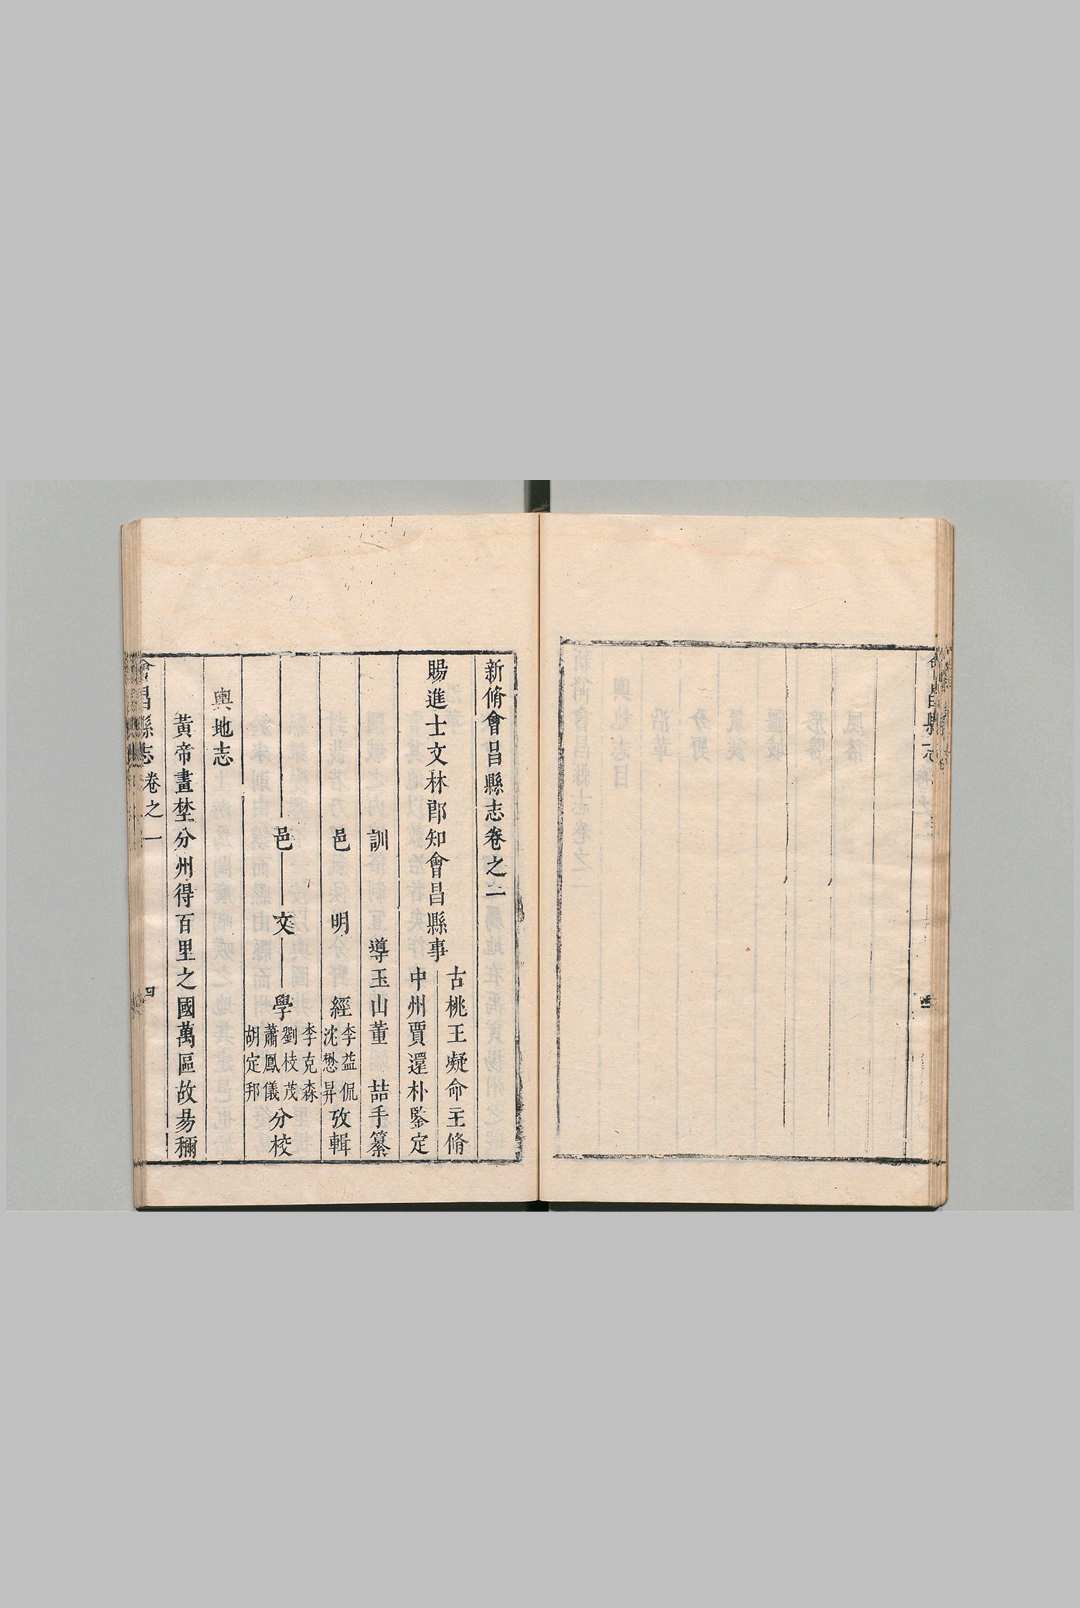 新脩會昌縣志卷之一
賜進士文林郎知會昌縣事
古桃王凝命主脩
中州賈還朴鑒定
訓導玉山董喆手纂
邑明經李益侃沈懋昇攷輯
邑文學李克森劉枝茂蕭鳳儀胡定邦分校
輿地志
黃帝畫埜分州得百里之國萬區故昜稱
會昌縣志
卷之一
四